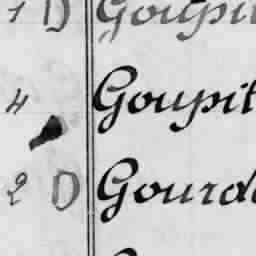 1 D Goupil
4 Goupit
2 D Gourd